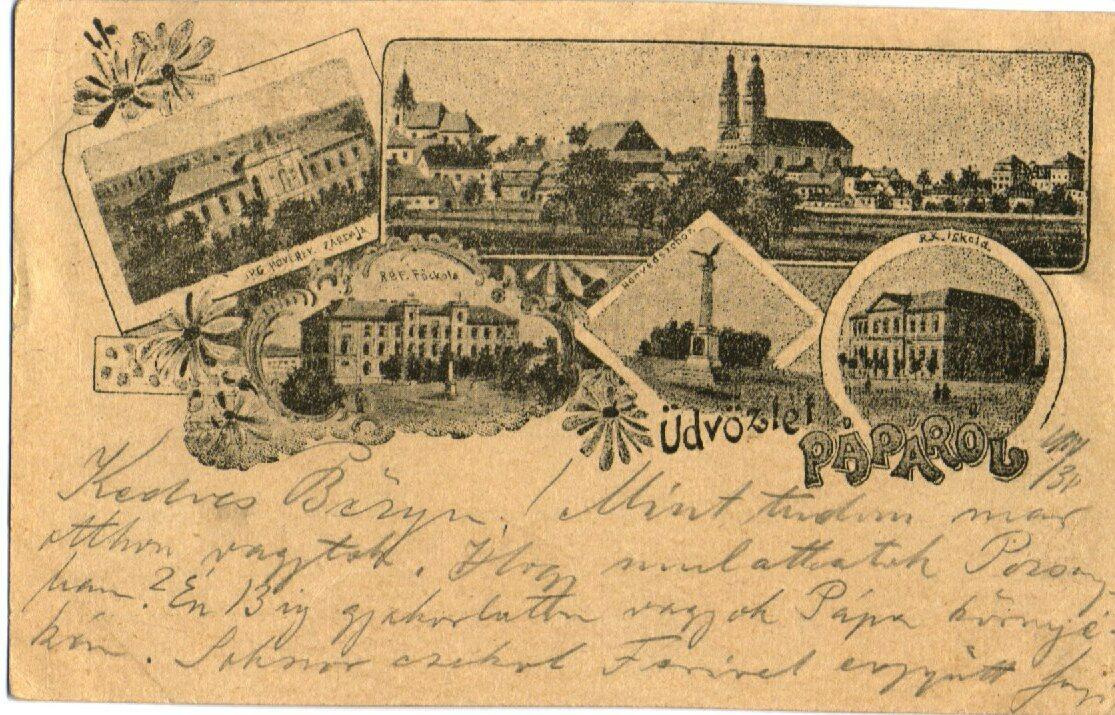 IRG. NŐVÉREK ZÁRDÁJA
REF. Főskola
Honvédszobor
R.K. Iskola
Üdvözlet
PÁPÁRÓL
Kedves
! Mint tudom már
otthon vagytok. Hogy mulattatok Pozsony
ban? Én 13 ig gyakorlaton vagyok Pápa környé
kén. Sokszor csókol Ferivel együtt